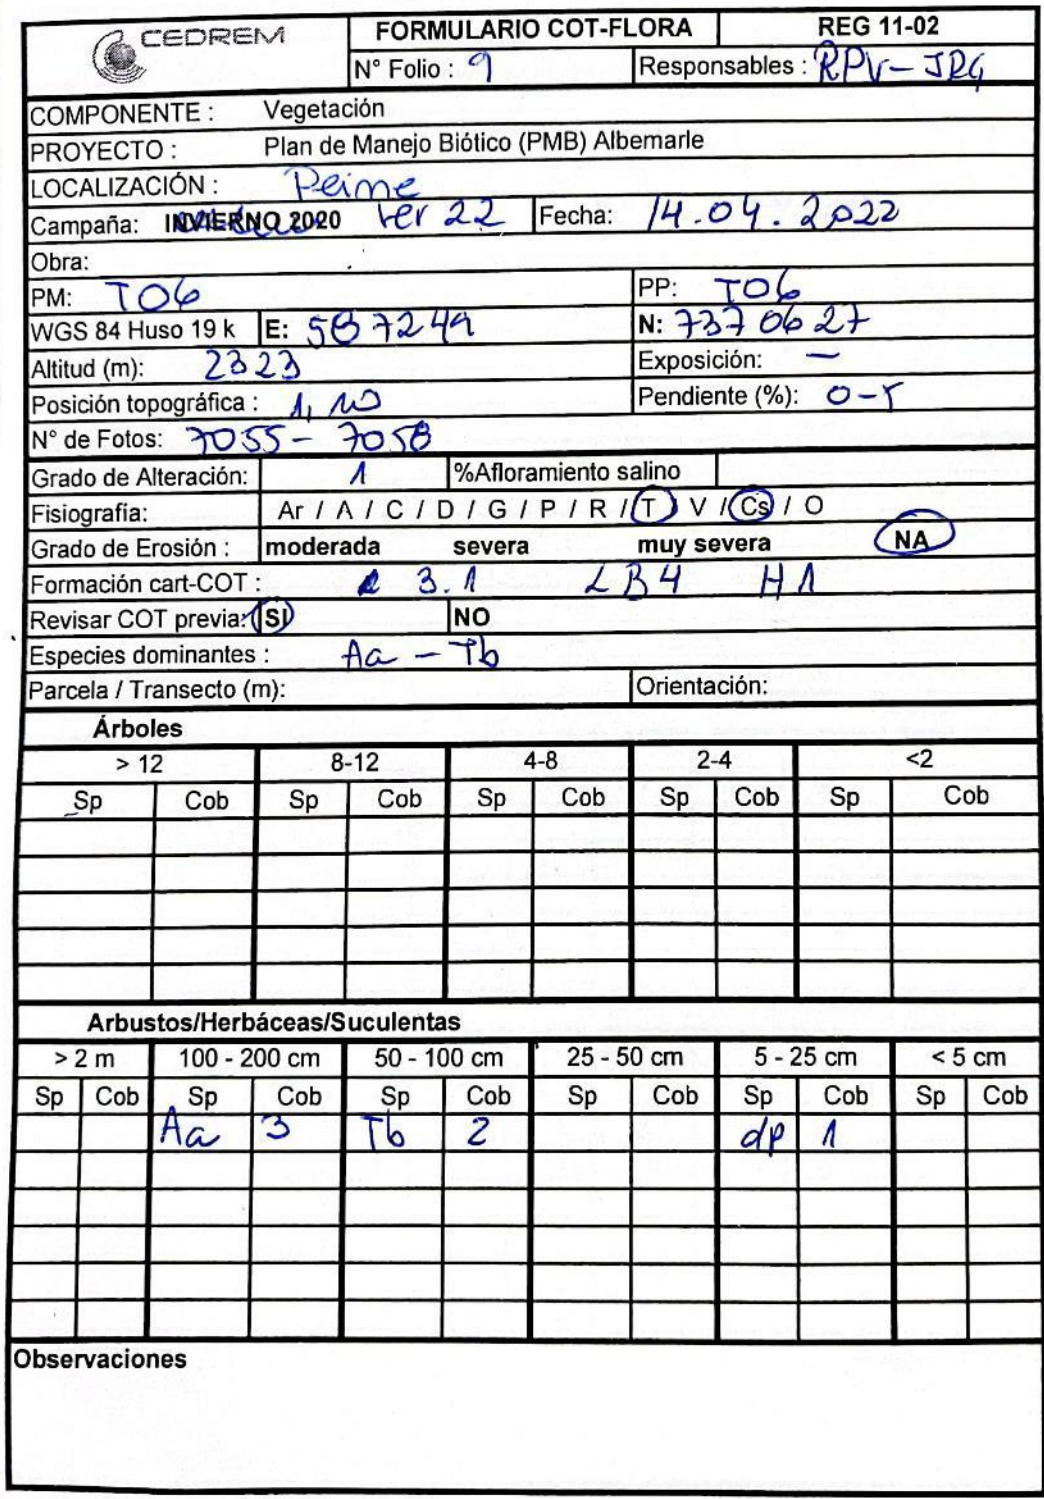 CEDREM
FORMULARIO COT-FLORA REG 11-02
N° Folio : 9 Responsables : RPV - JRG
COMPONENTE : Vegetación
PROYECTO : Plan de Manejo Biótico (PMB) Albemarle
LOCALIZACIÓN : Peine
Campaña: INVIERNO 2020 ver 22 Fecha: 14.04.2022
Obra:
PM: T06 PP: T06
WGS 84 Huso 19 k E: 587249 N: 7370627
Altitud (m): 2323 Exposición: —
Posición topográfica : 1, 10 Pendiente (%): 0-5
N° de Fotos: 7055 - 7058
Grado de Alteración: 1 %Afloramiento salino
Fisiografía: Ar / A / C / D / G / P / R / T / V / Cs / O
Grado de Erosión : moderada severa muy severa NA
Formación cart-COT : 3.1 LB4 H1
Revisar COT previa: SI NO
Especies dominantes : Aa - Tb
Parcela / Transecto (m): Orientación:
Árboles
> 12 8-12 4-8 2-4 <2
Sp Cob Sp Cob Sp Cob Sp Cob Sp Cob
Arbustos/Herbáceas/Suculentas
> 2 m 100 - 200 cm 50 - 100 cm 25 - 50 cm 5 - 25 cm < 5 cm
Sp Cob Sp Cob Sp Cob Sp Cob Sp Cob Sp Cob
Aa 3 Tb 2 dp 1
Observaciones